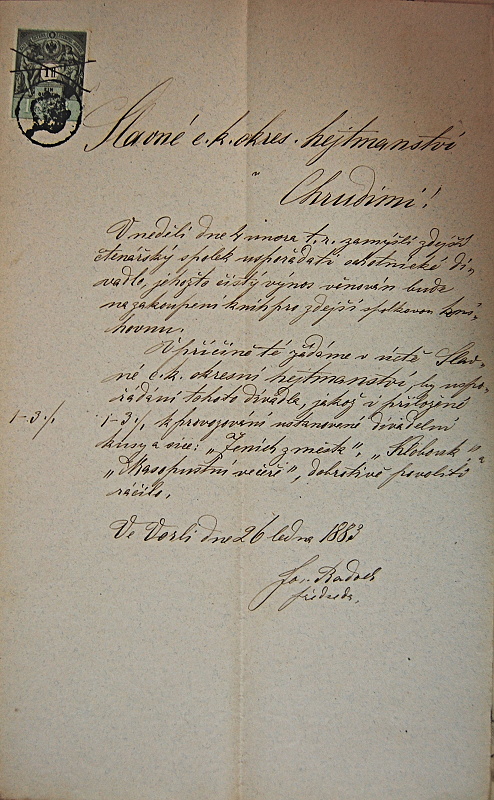 Slavné c. k. okres. hejtmanství
v
Chrudimi!
V neděli dne 4 února t. r. zamýšlí zdejší
čtenářský spolek uspořádati ochotnické di-
vadlo, jehožto čistý výnos věnován bude
na zakoupení knih pro zdejší spolkovou kni-
hovnu.
V příčině té žádáme v úctě Slav-
né c. k. okresní hejtmanství, by uspo-
řádání tohoto divadla, jakož v příloze
1-3 ·/. 1-3 ·/. k provozování ustanovené divadelní
kusy a sice: „Ženich z města", „Klobouk" a
„Masopustní večeře", dobrotivě povoliti
ráčilo.
Ve Vorli dne 26 ledna 1883
Jos. Radoch
předseda.